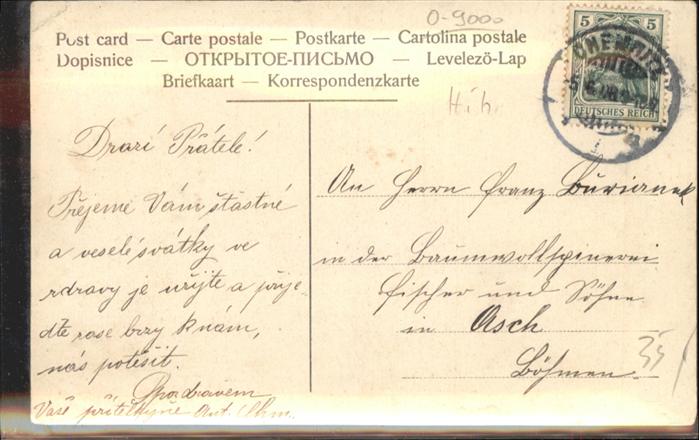 O-9000
Post card — Carte postale — Postkarte — Cartolina postale
Dopisnice — ОТКРЫТОЕ-ПИСЬМО — Levelezö-Lap
Briefkaart — Korrespondenzkarte
5 5
CHEMNITZ
DEUTSCHES REICH
Drazí Přátelé!
Přejeme Vám štastné
a veselé svátky ve
zdravy je užijte a přije-
dte zase brzy k nám,
nás potěsit.
S pozdravem
Vaše přítelkyně Ant.
An Herrn Franz Burianek
in der Baumwollspinerei
Fischer und Söhne
in Asch
Böhmen.